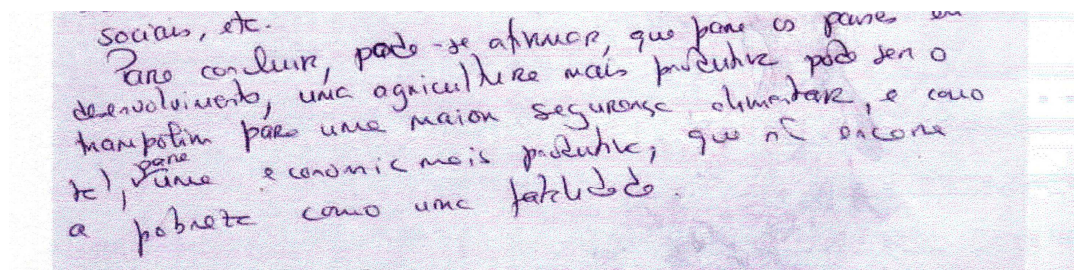 sociais, etc.
Para concluir, pode-se afirmar, que para os países em
desenvolvimento, uma agricultura mais produtiva pode ser o
trampolim para uma maior segurança alimentar, e como
tal, para uma economia mais produtiva, que ñ encare
a pobreza como uma fatalidade.